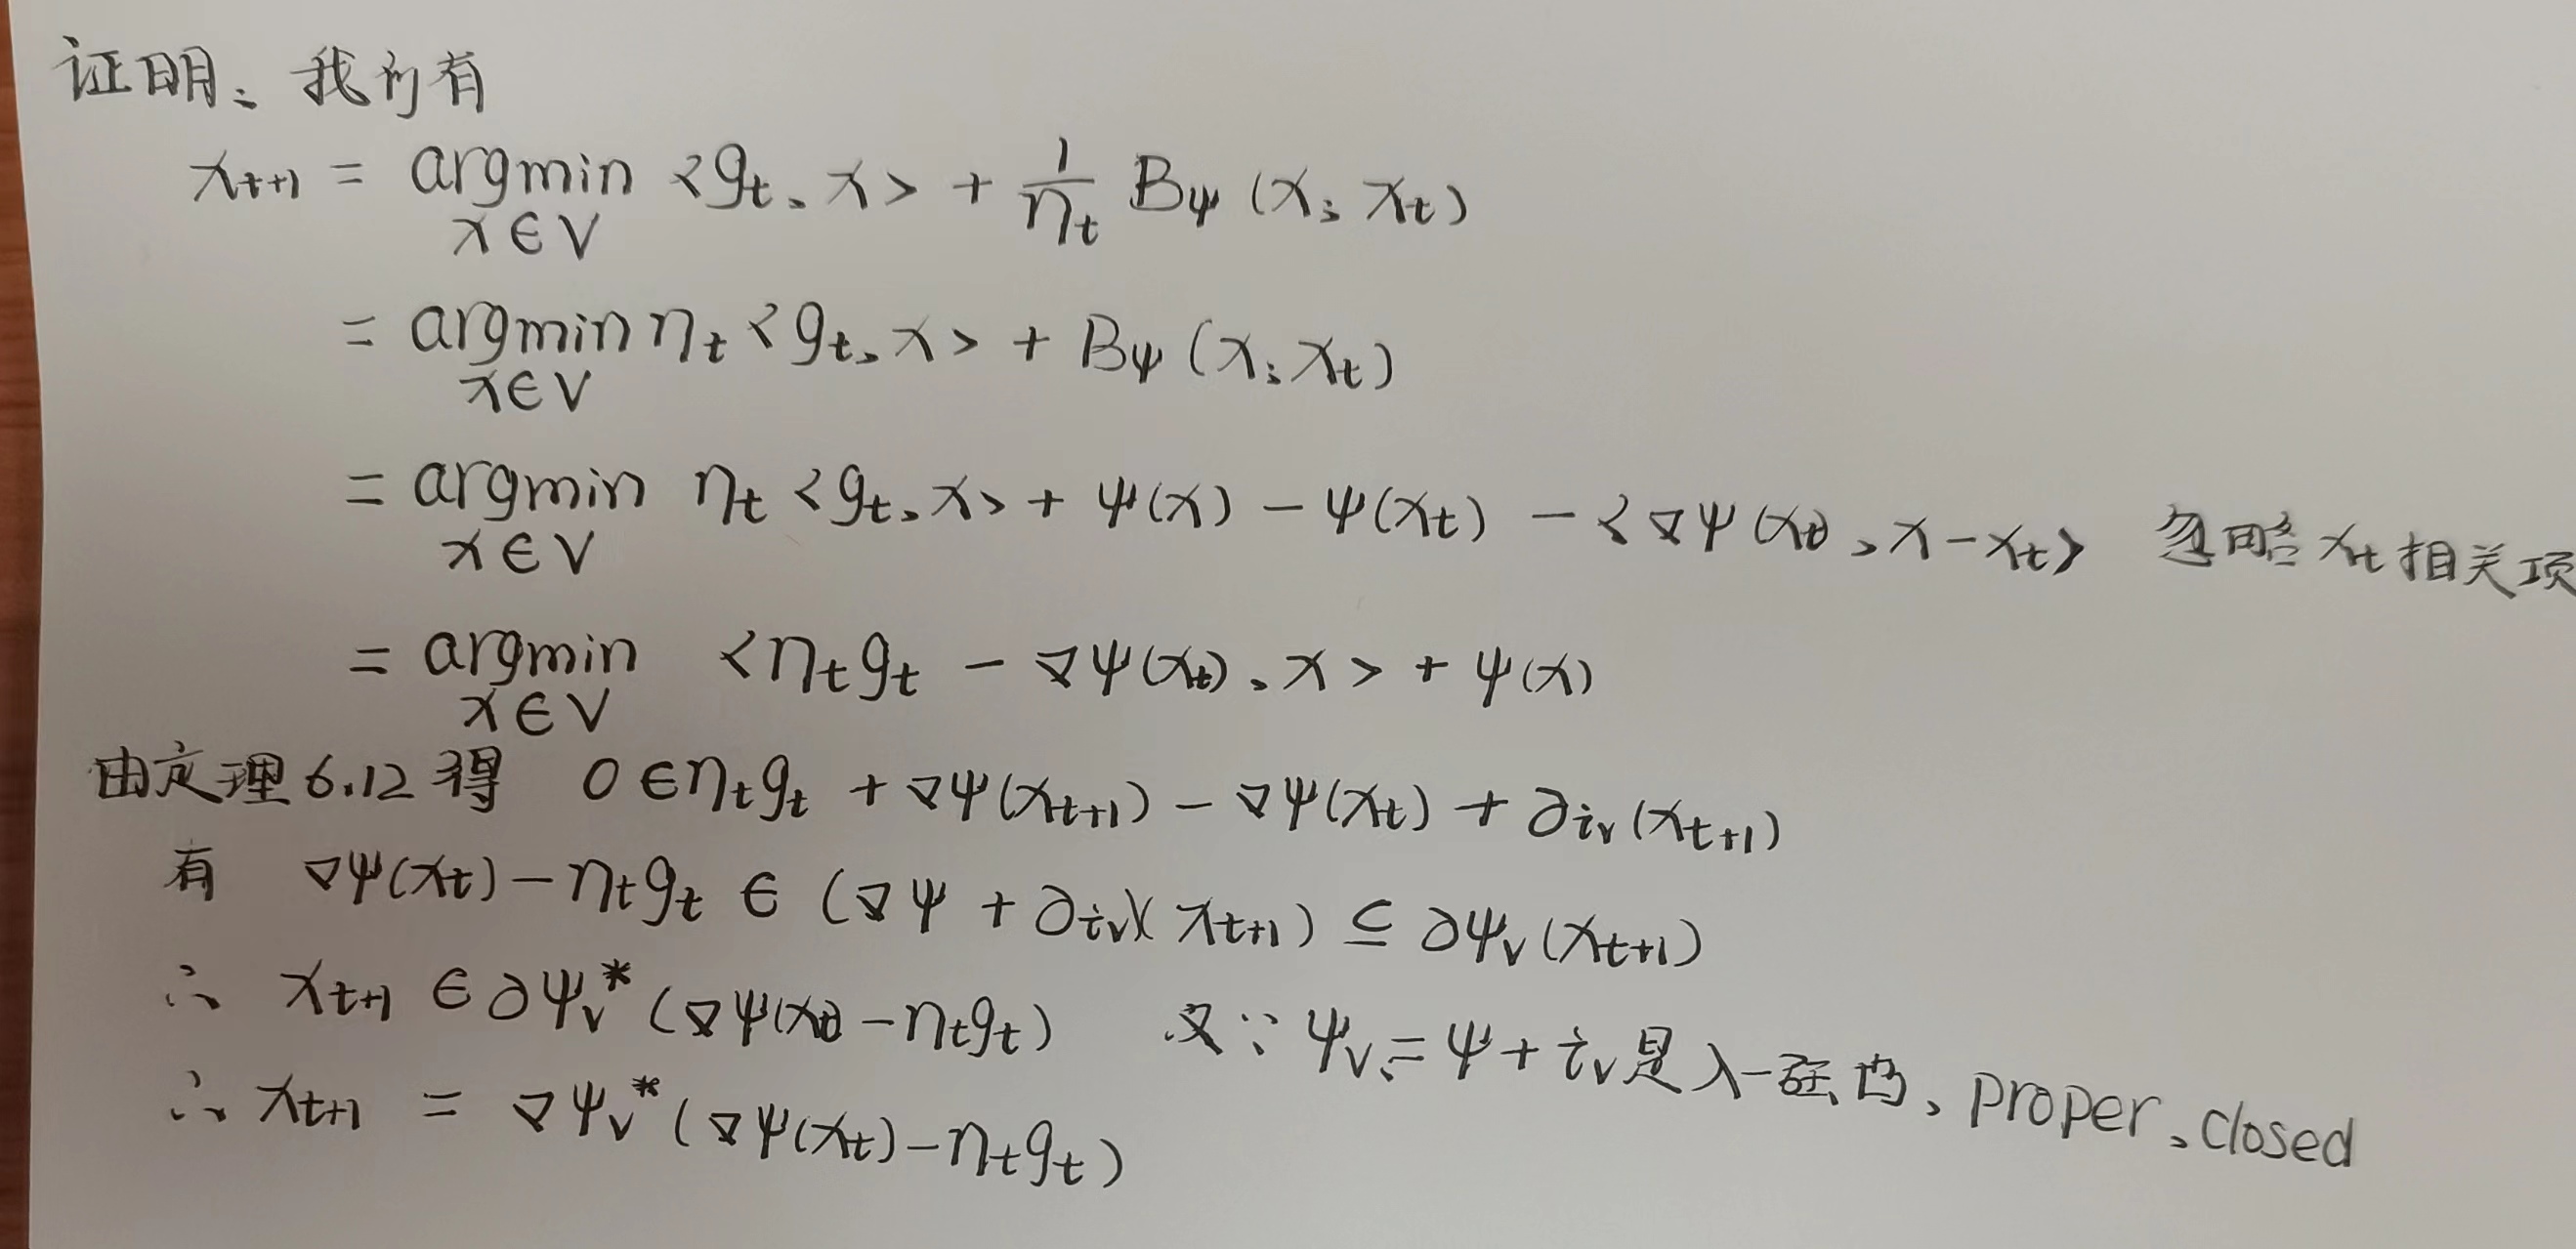 证明: 我们有
x_{t+1} = argmin_{x∈V} <g_t, x> + 1/η_t B_ψ (x; x_t)
= argmin_{x∈V} η_t <g_t, x> + B_ψ (x; x_t)
= argmin_{x∈V} η_t <g_t, x> + ψ(x) - ψ(x_t) - <∇ψ(x_t), x-x_t> 忽略x_t相关项
= argmin_{x∈V} <η_t g_t - ∇ψ(x_t), x> + ψ(x)
由定理6.12得 0 ∈ η_t g_t + ∇ψ(x_{t+1}) - ∇ψ(x_t) + ∂i_V(x_{t+1})
有 ∇ψ(x_t) - η_t g_t ∈ (∇ψ + ∂i_V)(x_{t+1}) ⊆ ∂ψ_V(x_{t+1})
∴ x_{t+1} ∈ ∂ψ_V^* (∇ψ(x_t) - η_t g_t) 又∵ ψ_V := ψ + i_V是λ-强凸、proper、closed
∴ x_{t+1} = ∇ψ_V^* (∇ψ(x_t) - η_t g_t)